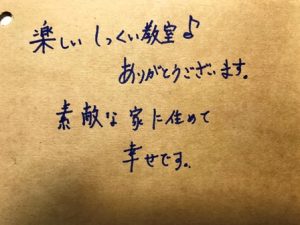 楽しい しっくい教室♪
ありがとうございます。
素敵な家に住めて
幸せです。